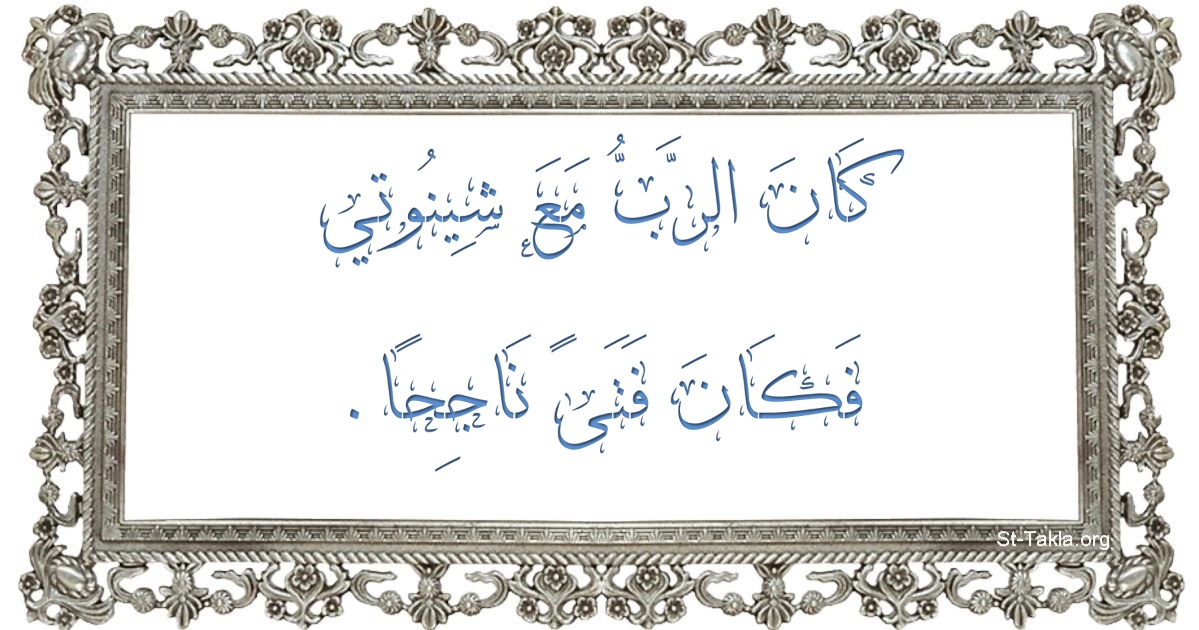 كَانَ الرَّبُّ مَعَ شِينُوتي
فَكَانَ فَتَىً نَاجِحًا .
St-Takla.org